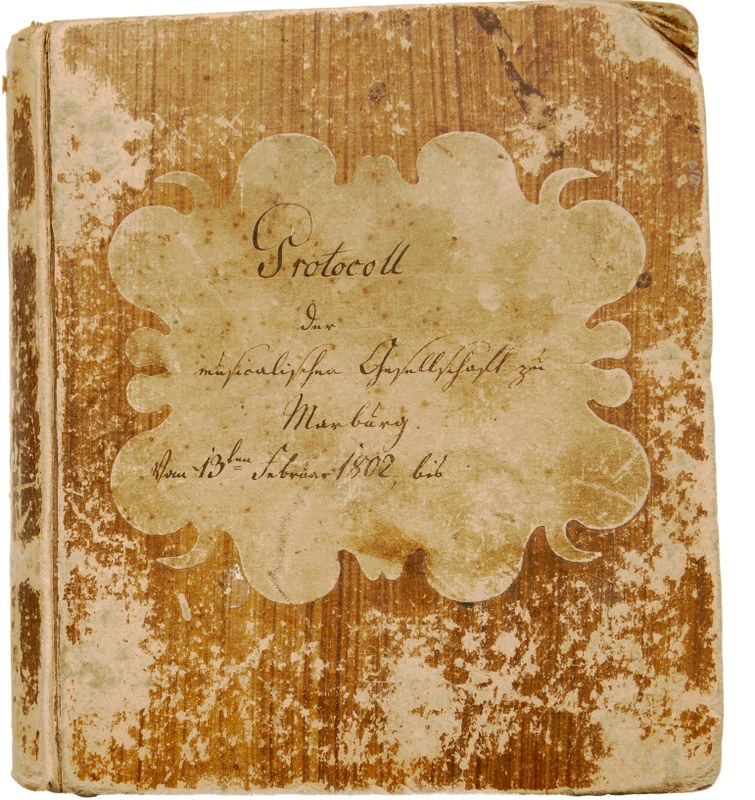 Protocoll
der
musicalischen Gesellschaft zu
Marburg.
Vom 13ten Februar 1802, bis